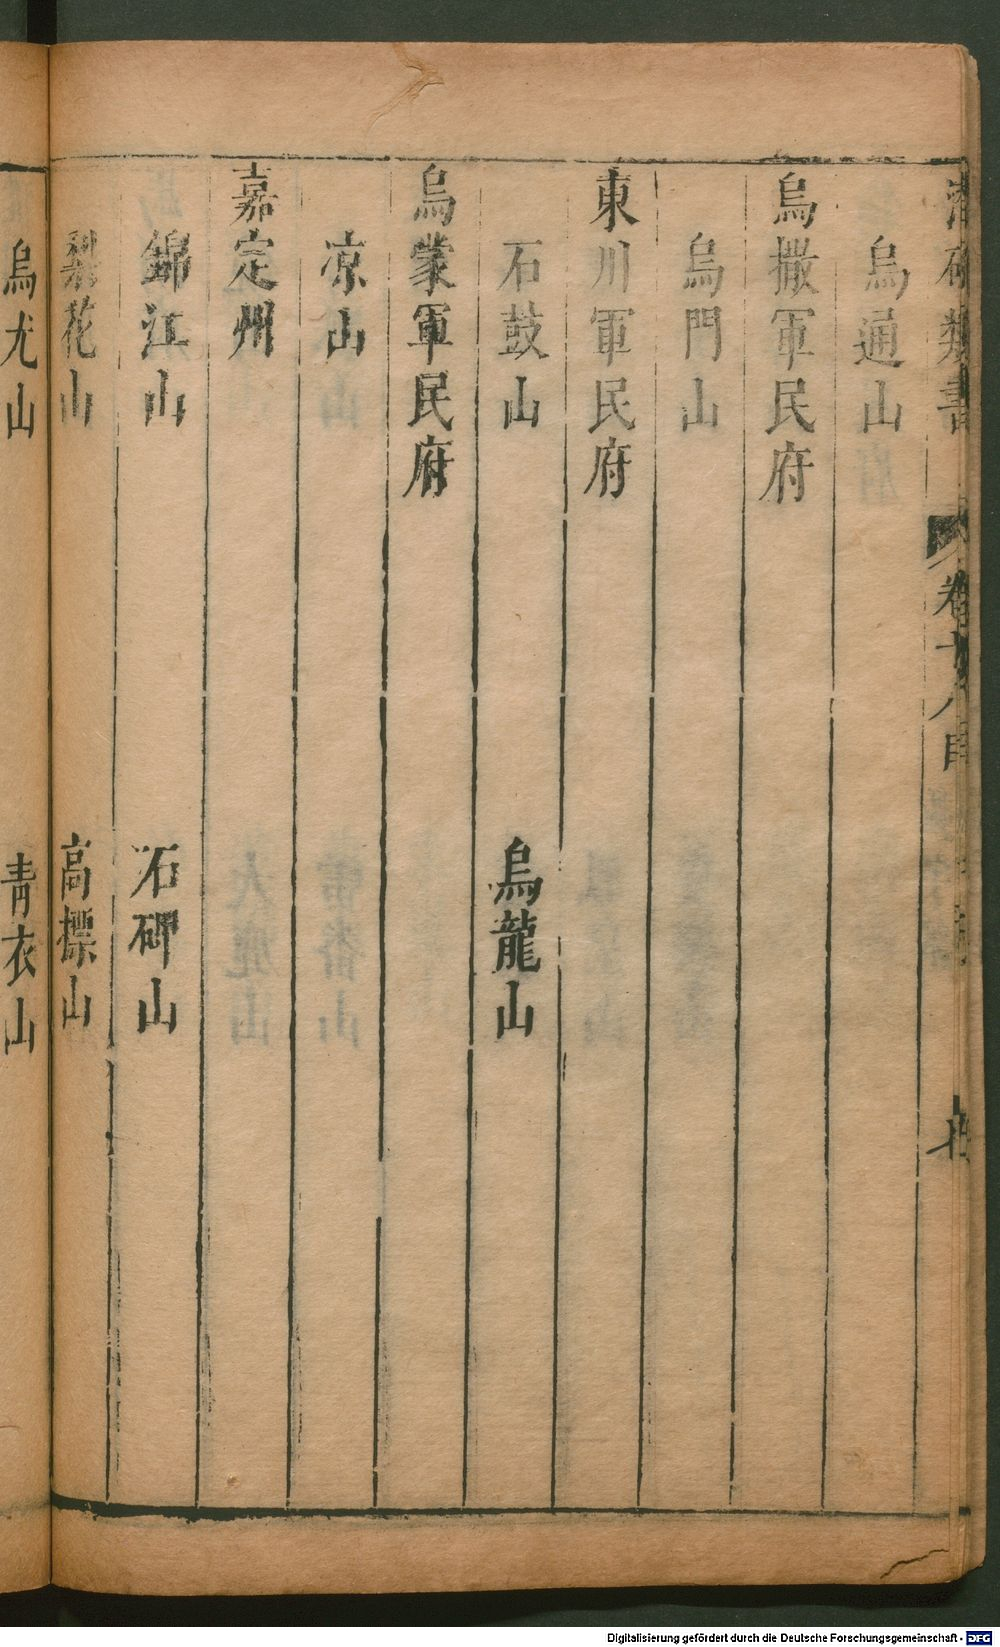 潛確類書 卷十八目
烏通山
烏撒軍民府
烏門山
東川軍民府
石鼓山 烏龍山
烏蒙軍民府
凉山
嘉定州
錦江山 石碑山
梨花山 高標山
烏尤山 青衣山
Digitalisierung gefördert durch die Deutsche Forschungsgemeinschaft - DFG